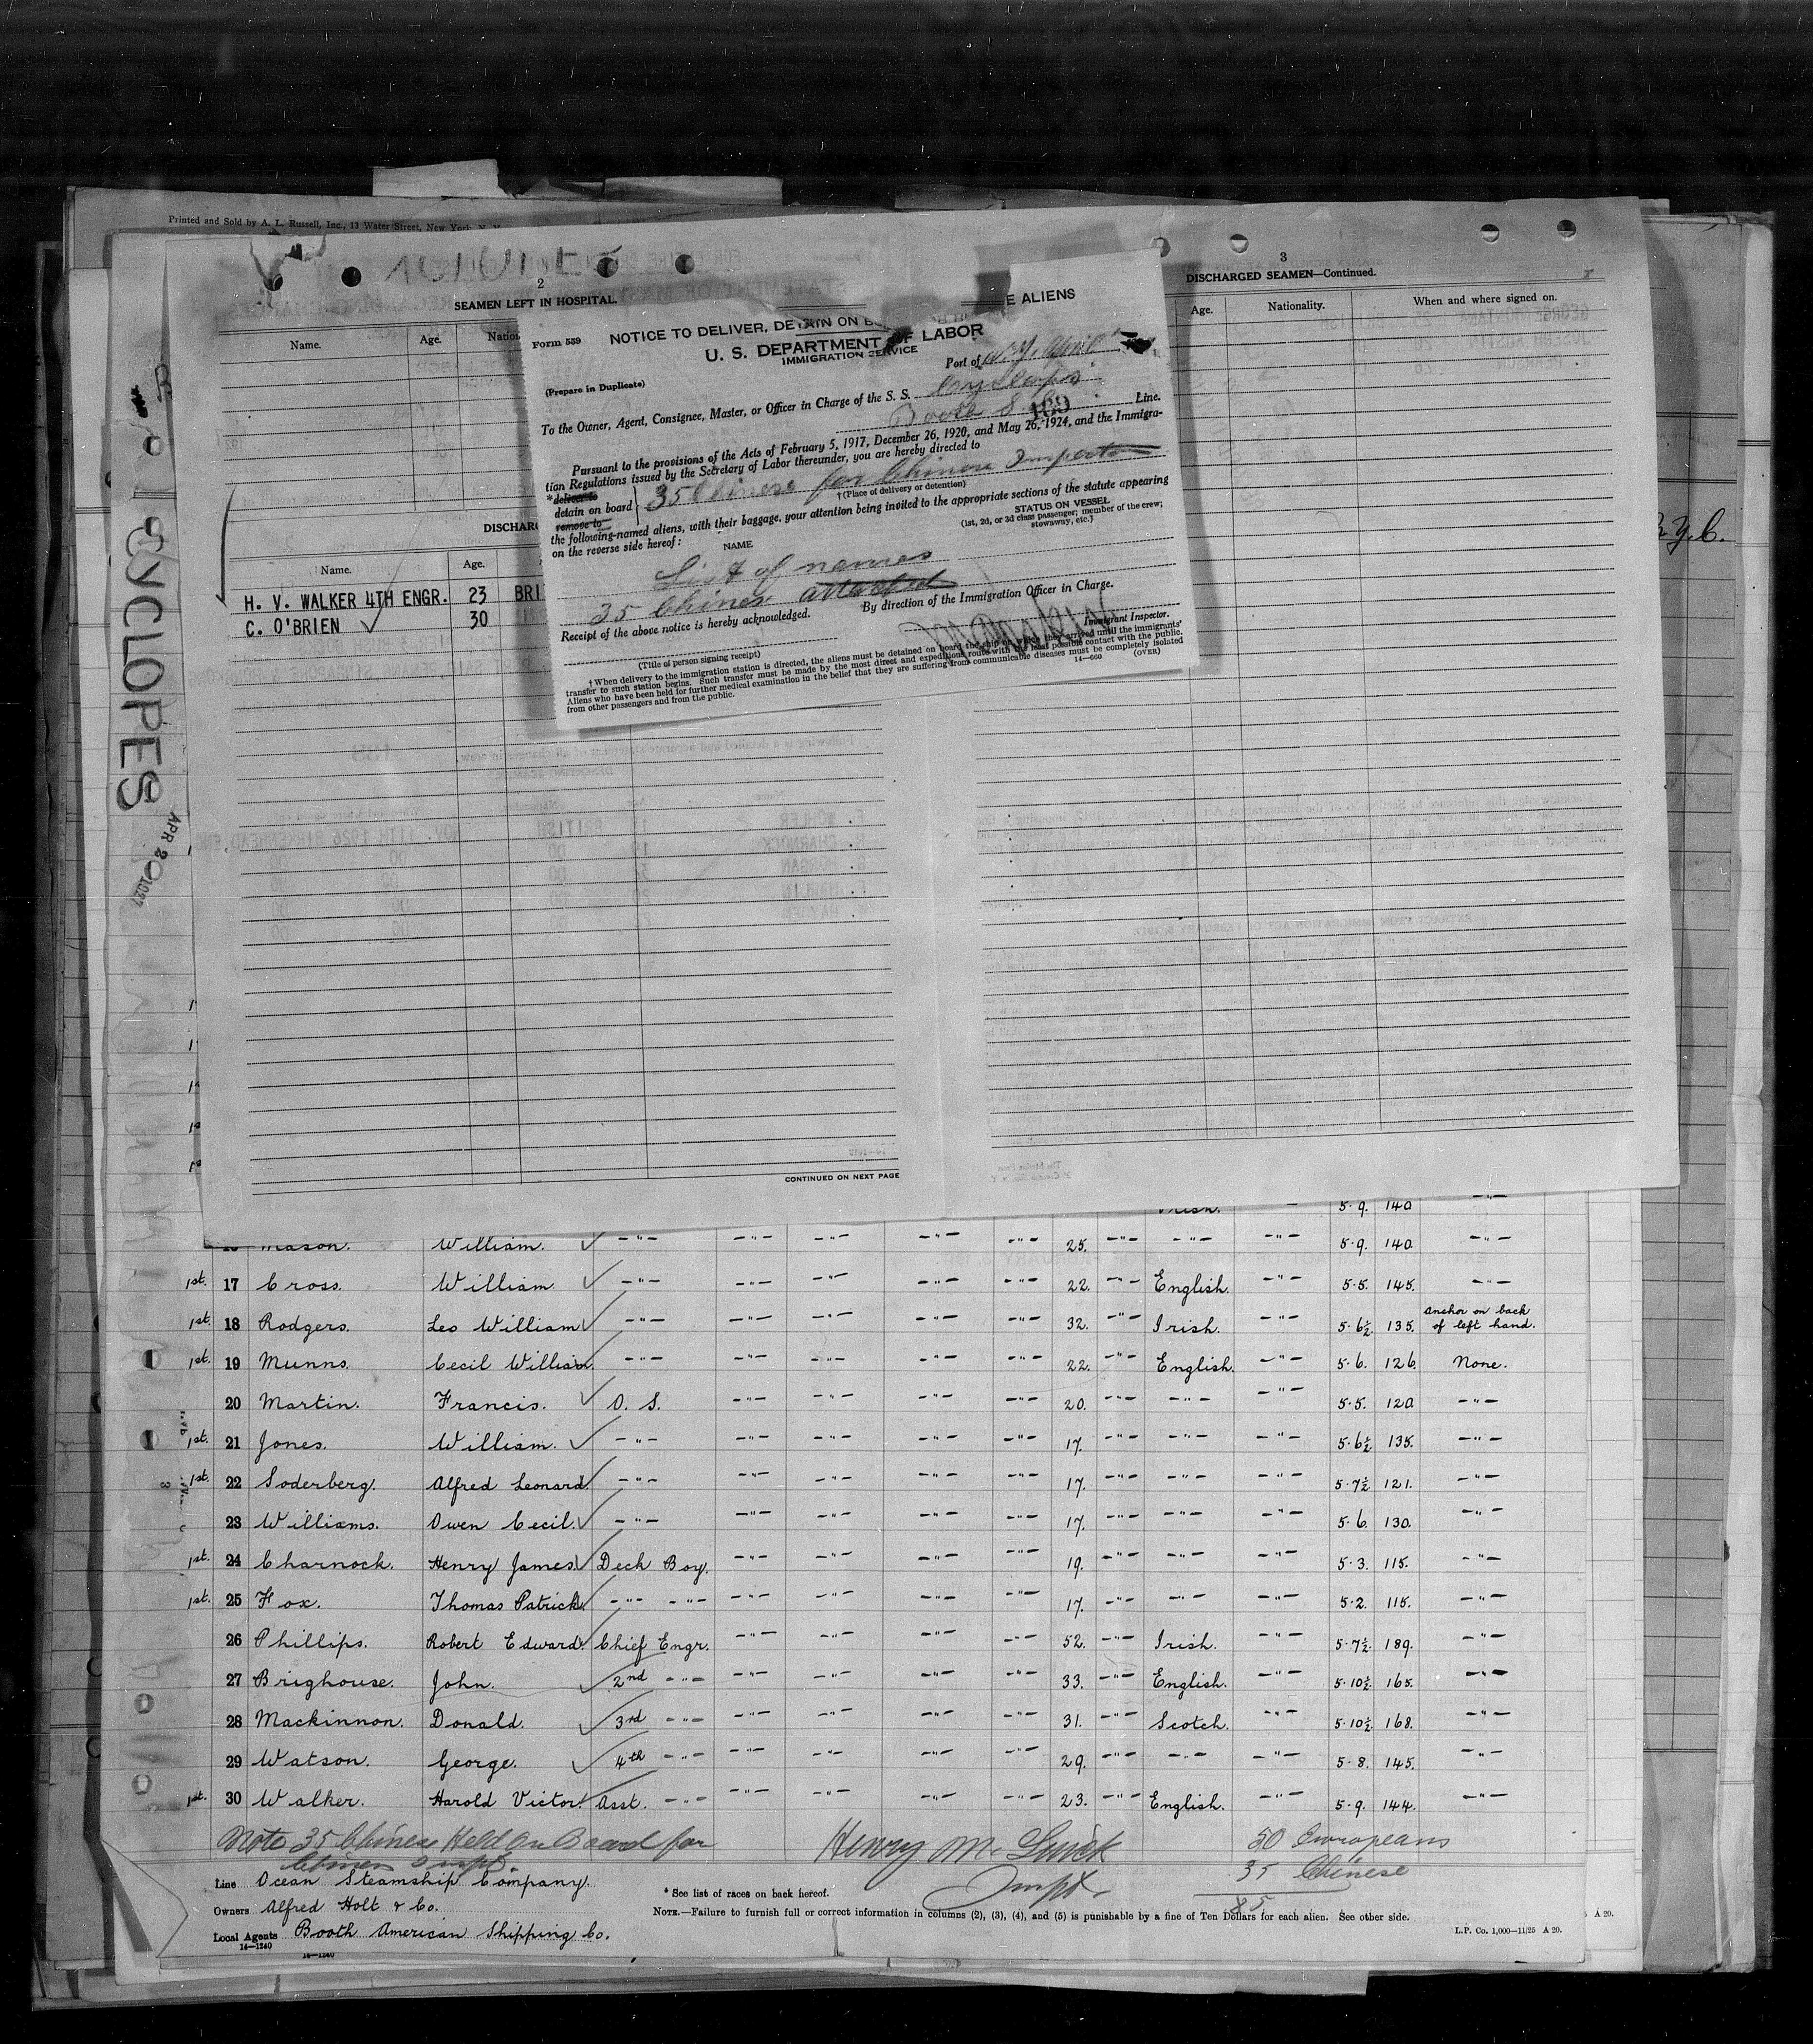 Printed and Sold by A. L. Russell, Inc., 11 Water Street, New York, N. Y.
2
SEAMEN LEFT IN HOSPITAL.
Name. Age.
DISCHARG
Name. Age.
H. V. WALKER 4TH ENGR. 23 BRI
C. O'BRIEN ✓ 30
CONTINUED ON NEXT PAGE
3
DISCHARGED SEAMEN—Continued.
Age. Nationality. When and where signed on.
E ALIENS
NOTICE TO DELIVER, DETAIN ON
Form 559
U. S. DEPARTMENT OF LABOR
IMMIGRATION SERVICE
(Prepare in Duplicate)
Port of N.Y. April
To the Owner, Agent, Consignee, Master, or Officer in Charge of the S. S. Cyclops
Booth S. S. Line.
169
Pursuant to the provisions of the Acts of February 5, 1917, December 26, 1920, and May 26, 1924, and the Immigra-
tion Regulations issued by the Secretary of Labor thereunder, you are hereby directed to
*deliver to
detain on board 35 Chinese for Chinese Inspector
remove to
†(Place of delivery or detention)
the following-named aliens, with their baggage, your attention being invited to the appropriate sections of the statute appearing
on the reverse side hereof:
NAME
STATUS ON VESSEL
(1st, 2d, or 3d class passenger; member of the crew;
stowaway, etc.)
List of names
35 Chinese attached
By direction of the Immigration Officer in Charge.
Receipt of the above notice is hereby acknowledged.
Immigrant Inspector.
(Title of person signing receipt)
†When delivery to the immigration station is directed, the aliens must be detained on board the ship on which they arrived until the immigrants'
transfer to such station begins. Such transfer must be made by the most direct and expeditious route with the least possible contact with the public.
Aliens who have been held for further medical examination in the belief that they are suffering from communicable diseases must be completely isolated
from other passengers and from the public.
14—660 (OVER)
CYCLOPES
APR 20 1927
N.Y.C.
Irish. 5·9. 140
Mason. William. ✓ —"— —"— —"— —"— —"— 25. —"— —"— —"— 5·9. 140. —"—
1st. 17 Cross. William ✓ —"— —"— —"— —"— —"— 22. —"— English. —"— 5·5. 145. —"—
1st. 18 Rodgers. Leo William ✓ —"— —"— —"— —"— —"— 32. —"— Irish. —"— 5·6½ 135. Anchor on back of left hand.
1st. 19 Munns. Cecil William. —"— —"— —"— —"— —"— 22. —"— English. —"— 5·6. 126. None.
20 Martin. Francis. ✓ O. S. —"— —"— —"— —"— 20. —"— —"— —"— 5·5. 120. —"—
1st. 21 Jones. William. ✓ —"— —"— —"— —"— —"— 17. —"— —"— —"— 5·6½ 135. —"—
1st. 22 Soderberg. Alfred Leonard. ✓ —"— —"— —"— —"— —"— 17. —"— —"— —"— 5·7½ 121. —"—
23 Williams. Owen Cecil. ✓ —"— —"— —"— —"— —"— 17. —"— —"— —"— 5·6. 130. —"—
1st. 24 Charnock. Henry James. ✓ Deck Boy. —"— —"— —"— —"— 19. —"— —"— —"— 5·3. 115. —"—
1st. 25 Fox. Thomas Patrick. ✓ —"— —"— —"— —"— —"— —"— 17. —"— —"— —"— 5·2. 115. —"—
26 Phillips. Robert Edward. ✓ Chief Engr. —"— —"— —"— —"— 52. —"— Irish. —"— 5·7½. 189. —"—
27 Brighouse. John. ✓ 2nd —"— —"— —"— —"— —"— 33. —"— English. —"— 5·10½. 165. —"—
28 Mackinnon. Donald. ✓ 3rd —"— —"— —"— —"— —"— 31. —"— Scotch. —"— 5·10½. 168. —"—
29 Watson. George. ✓ 4th —"— —"— —"— —"— —"— 29. —"— —"— —"— 5·8. 145. —"—
1st. 30 Walker. Harold Victor. ✓ Asst. —"— —"— —"— —"— —"— 23. —"— English. —"— 5·9. 144. —"—
Note 35 Chinese Held On Board for
Chinese Inspt.
Henry McGuick
Inspt.
50 Europeans
35 Chinese
85
Line Ocean Steamship Company.
Owners Alfred Holt & Co.
Local Agents Booth American Shipping Co.
14—1240
* See list of races on back hereof.
NOTE.—Failure to furnish full or correct information in columns (2), (3), (4), and (5) is punishable by a fine of Ten Dollars for each alien. See other side.
L.P. Co. 1,000—11/25 A 20.
A 20.
14—1240